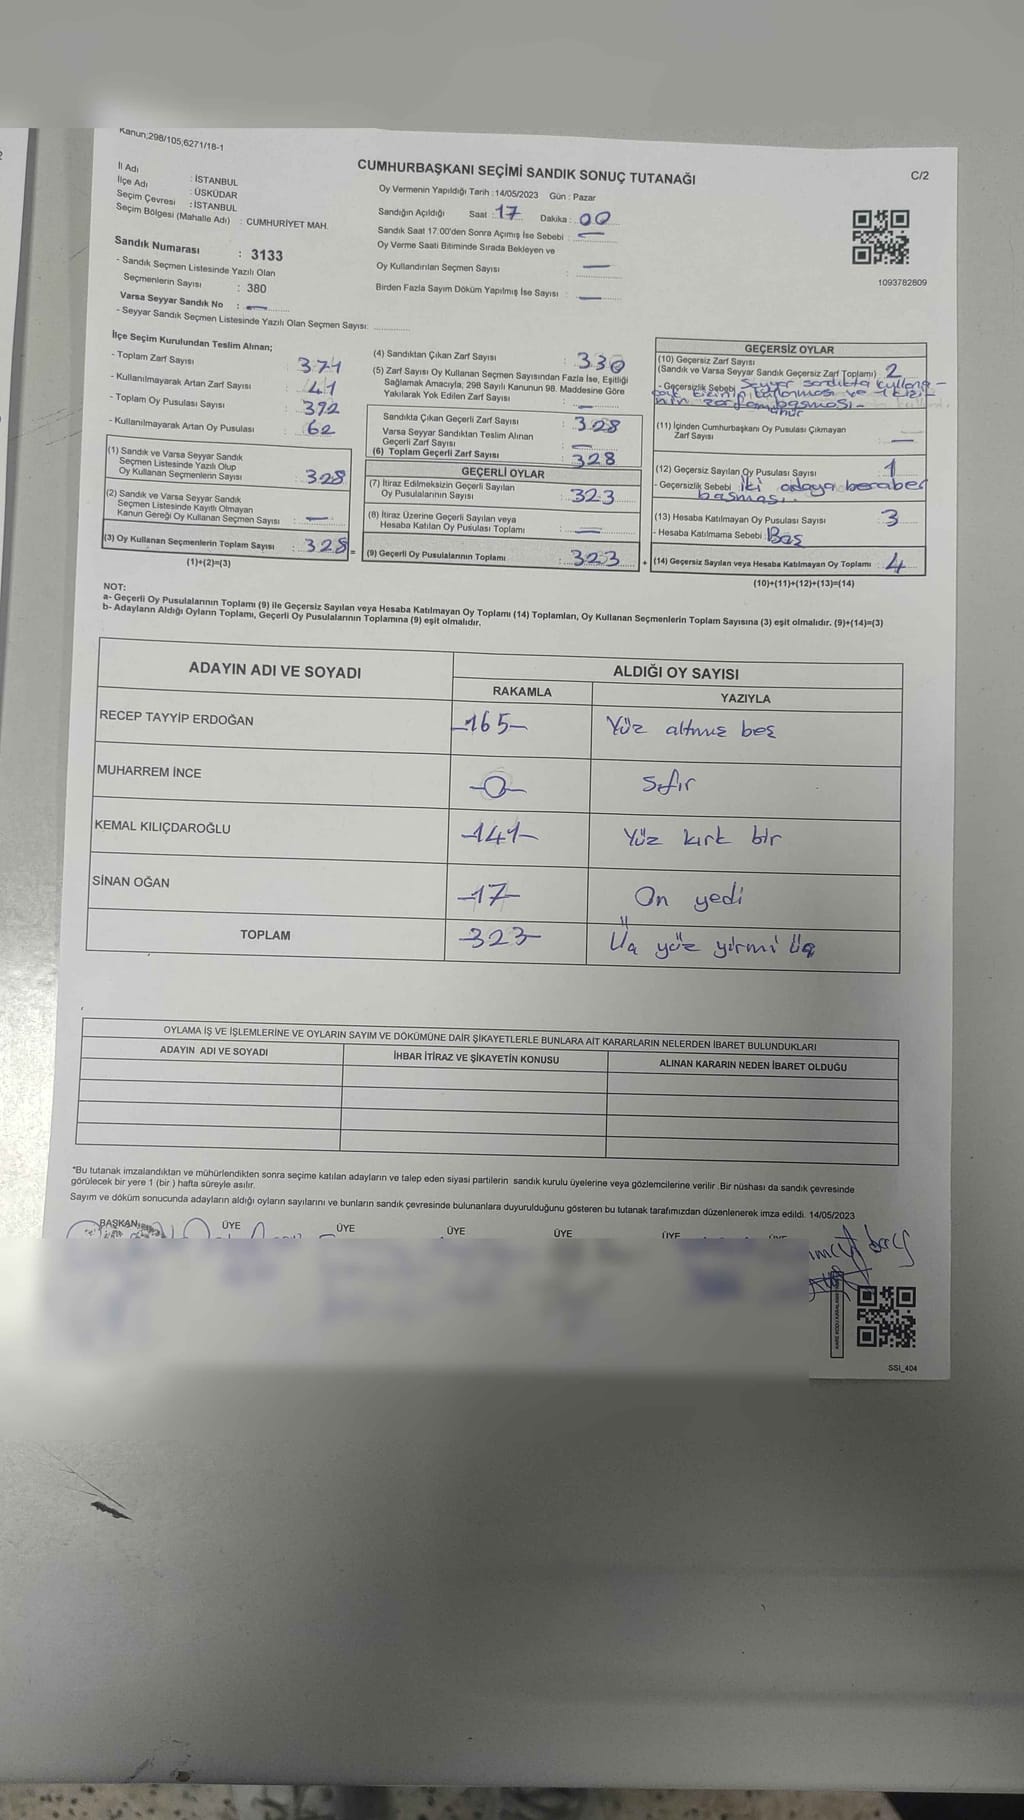 Kanun;298/105;6271/18-1
CUMHURBAŞKANI SEÇİMİ SANDIK SONUÇ TUTANAĞI
C/2
İl Adı : İSTANBUL
İlçe Adı : ÜSKÜDAR
Seçim Çevresi : İSTANBUL
Seçim Bölgesi (Mahalle Adı) : CUMHURİYET MAH.
Oy Vermenin Yapıldığı Tarih : 14/05/2023 Gün : Pazar
Sandığın Açıldığı Saat : 17 Dakika : 00
Sandık Saat 17:00'den Sonra Açımış İse Sebebi : —
Oy Verme Saati Bitiminde Sırada Bekleyen ve
Oy Kullandırılan Seçmen Sayısı : —
Birden Fazla Sayım Döküm Yapılmış İse Sayısı : —
1093782809
Sandık Numarası : 3133
- Sandık Seçmen Listesinde Yazılı Olan
Seçmenlerin Sayısı : 380
Varsa Seyyar Sandık No : —
- Seyyar Sandık Seçmen Listesinde Yazılı Olan Seçmen Sayısı:
İlçe Seçim Kurulundan Teslim Alınan;
- Toplam Zarf Sayısı : 371
- Kullanılmayarak Artan Zarf Sayısı : 41
- Toplam Oy Pusulası Sayısı : 392
- Kullanılmayarak Artan Oy Pusulası : 62
(1) Sandık ve Varsa Seyyar Sandık
Seçmen Listesinde Yazılı Olup
Oy Kullanan Seçmenlerin Sayısı : 328
(2) Sandık ve Varsa Seyyar Sandık
Seçmen Listesinde Kayıtlı Olmayan
Kanun Gereği Oy Kullanan Seçmen Sayısı : —
(3) Oy Kullanan Seçmenlerin Toplam Sayısı : 328 =
(1)+(2)=(3)
(4) Sandıktan Çıkan Zarf Sayısı : 330
(5) Zarf Sayısı Oy Kullanan Seçmen Sayısından Fazla İse, Eşitliği
Sağlamak Amacıyla, 298 Sayılı Kanunun 98. Maddesine Göre
Yakılarak Yok Edilen Zarf Sayısı : —
Sandıkta Çıkan Geçerli Zarf Sayısı : 328
Varsa Seyyar Sandıktan Teslim Alınan
Geçerli Zarf Sayısı : —
(6) Toplam Geçerli Zarf Sayısı : 328
GEÇERLİ OYLAR
(7) İtiraz Edilmeksizin Geçerli Sayılan
Oy Pusulalarının Sayısı : 323
(8) İtiraz Üzerine Geçerli Sayılan veya
Hesaba Katılan Oy Pusulası Toplamı : —
(9) Geçerli Oy Pusulalarının Toplamı : 323 +
GEÇERSİZ OYLAR
(10) Geçersiz Zarf Sayısı
(Sandık ve Varsa Seyyar Sandık Geçersiz Zarf Toplamı) : 2
- Geçersizlik Sebebi : Seyyar sandıkta kullana-
(11) İçinden Cumhurbaşkanı Oy Pusulası Çıkmayan
Zarf Sayısı : —
(12) Geçersiz Sayılan Oy Pusulası Sayısı : 1
- Geçersizlik Sebebi : iki adaya beraber
basması.
(13) Hesaba Katılmayan Oy Pusulası Sayısı : 3
- Hesaba Katılmama Sebebi : Boş
(14) Geçersiz Sayılan veya Hesaba Katılmayan Oy Toplamı : 4
(10)+(11)+(12)+(13)=(14)
NOT:
a- Geçerli Oy Pusulalarının Toplamı (9) ile Geçersiz Sayılan veya Hesaba Katılmayan Oy Toplamı (14) Toplamları, Oy Kullanan Seçmenlerin Toplam Sayısına (3) eşit olmalıdır. (9)+(14)=(3)
b- Adayların Aldığı Oyların Toplamı, Geçerli Oy Pusulalarının Toplamına (9) eşit olmalıdır.
ADAYIN ADI VE SOYADI
ALDIĞI OY SAYISI
RAKAMLA YAZIYLA
RECEP TAYYİP ERDOĞAN -165- Yüz altmış beş
MUHARREM İNCE -0- Sıfır
KEMAL KILIÇDAROĞLU -141- Yüz kırk bir
SİNAN OĞAN -17- On yedi
TOPLAM -323- Üç yüz yirmi üç
OYLAMA İŞ VE İŞLEMLERİNE VE OYLARIN SAYIM VE DÖKÜMÜNE DAİR ŞİKAYETLERLE BUNLARA AİT KARARLARIN NELERDEN İBARET BULUNDUKLARI
ADAYIN ADI VE SOYADI İHBAR İTİRAZ VE ŞİKAYETİN KONUSU ALINAN KARARIN NEDEN İBARET OLDUĞU
*Bu tutanak imzalandıktan ve mühürlendikten sonra seçime katılan adayların ve talep eden siyasi partilerin sandık kurulu üyelerine veya gözlemcilerine verilir .Bir nüshası da sandık çevresinde
görülecek bir yere 1 (bir ) hafta süreyle asılır.
Sayım ve döküm sonucunda adayların aldığı oyların sayılarını ve bunların sandık çevresinde bulunanlara duyurulduğunu gösteren bu tutanak tarafımızdan düzenlenerek imza edildi. 14/05/2023
BAŞKAN ÜYE ÜYE ÜYE ÜYE ÜYE
SSI_404